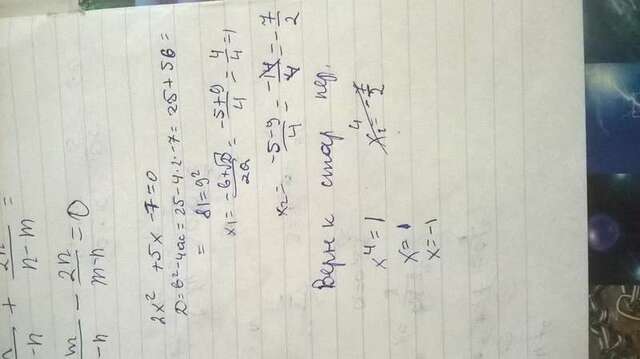 + 2n / n-m =
m / -n - 2n / m-n = 0
2x² + 5x - 7 = 0
D = b² - 4ac = 25 - 4·2·-7 = 25 + 56 =
= 81 = 9²
x1 = -b+√D / 2a = -5+9 / 4 = 4/4 = 1
x2 = -5-9 / 4 = -14 / 4 = -7/2
Верн к стар пер.
x⁴ = 1 x⁴ = -7/2
x = 1
x = -1